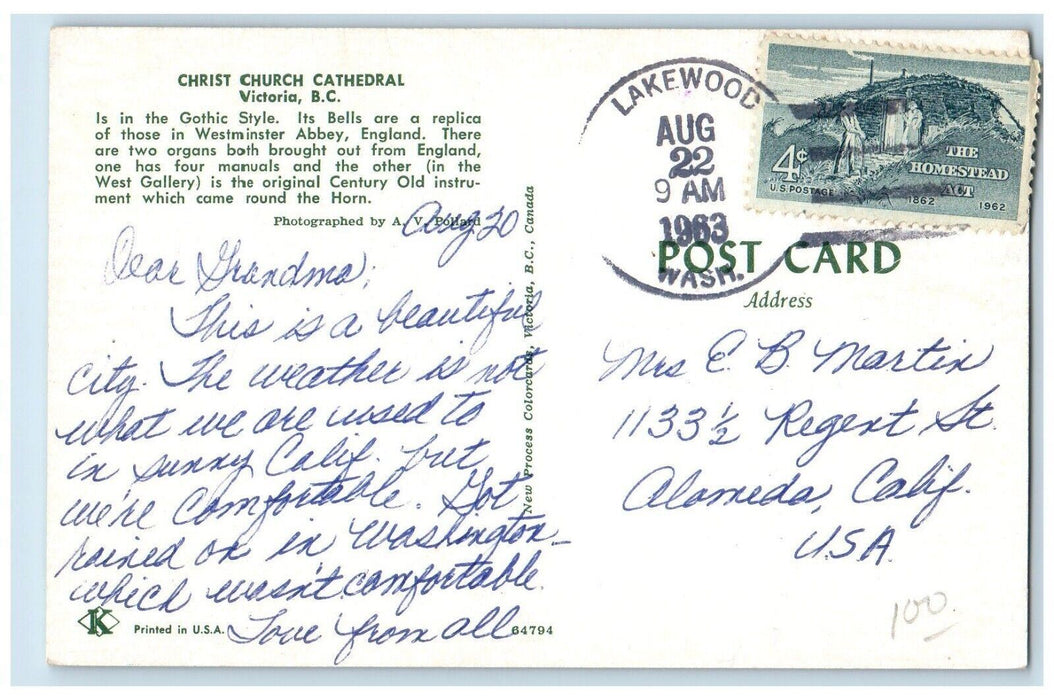 CHRIST CHURCH CATHEDRAL
Victoria, B.C.
Is in the Gothic Style. Its Bells are a replica
of those in Westminster Abbey, England. There
are two organs both brought out from England,
one has four manuals and the other (in the
West Gallery) is the original Century Old instru-
ment which came round the Horn.
Photographed by A. V. Pollard
Aug 20
Dear Grandma;
This is a beautiful
city. The weather is not
what we are used to
in sunny Calif. but
we're comfortable. Got
rained on in Washington—
which wasn't comfortable.
Love from all
K
Printed in U.S.A.
64794
New Process Colorcards, Victoria, B.C., Canada
LAKEWOOD
AUG
22
9 AM
1963
WASH.
4¢
U.S. POSTAGE
THE
HOMESTEAD
ACT
1862
1962
POST CARD
Address
Mrs E. B. Martin
1133½ Regent St.
Alameda, Calif.
USA.
100